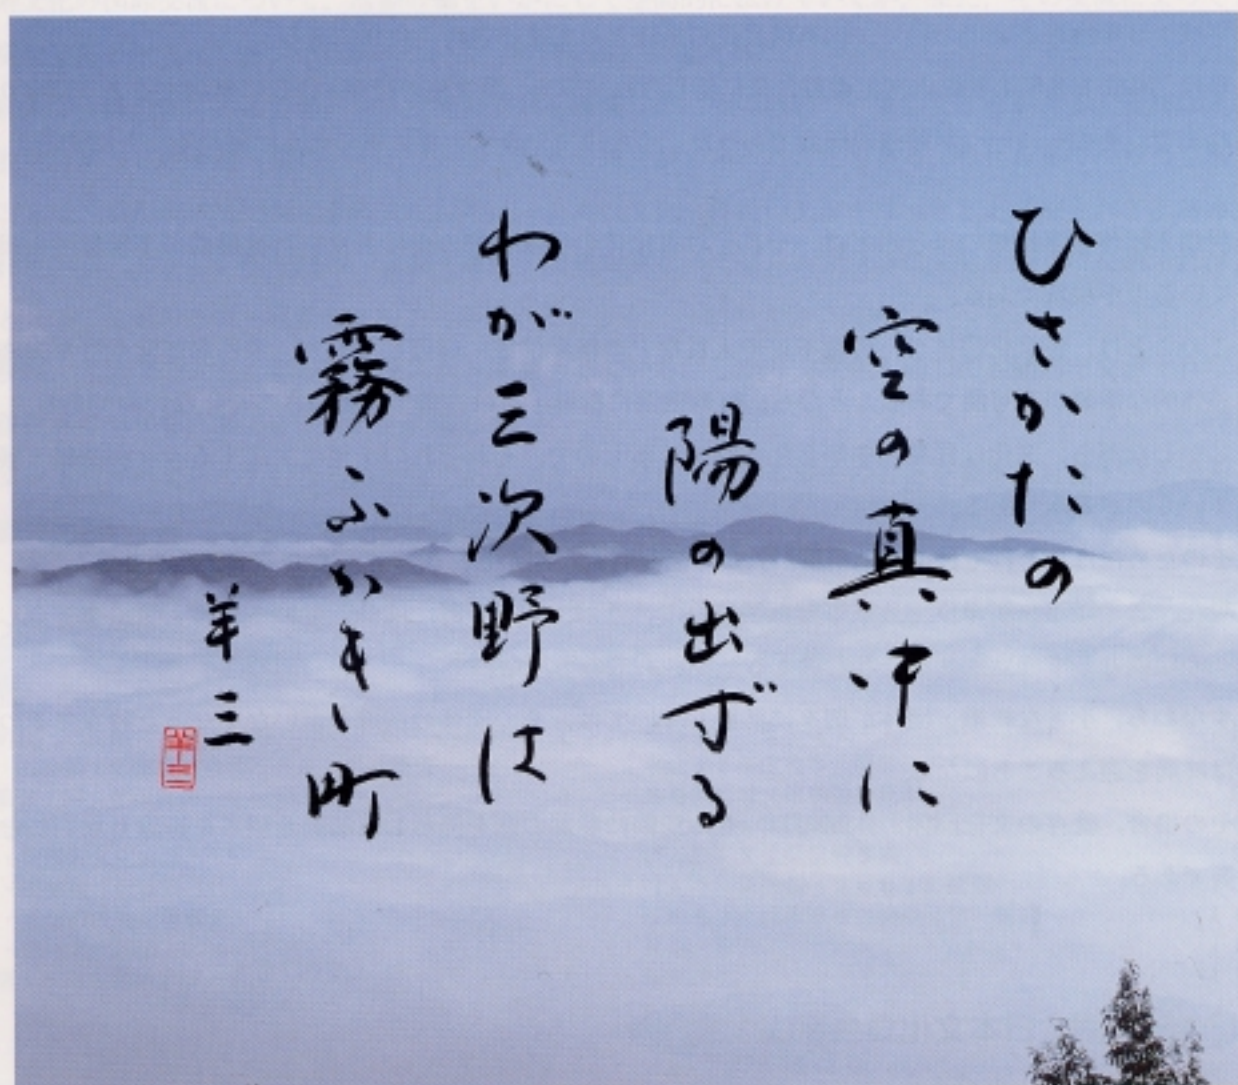 ひさかたの
空の真中に
陽の出ずる
わが三次野は
霧ふかき町
羊三
羊三